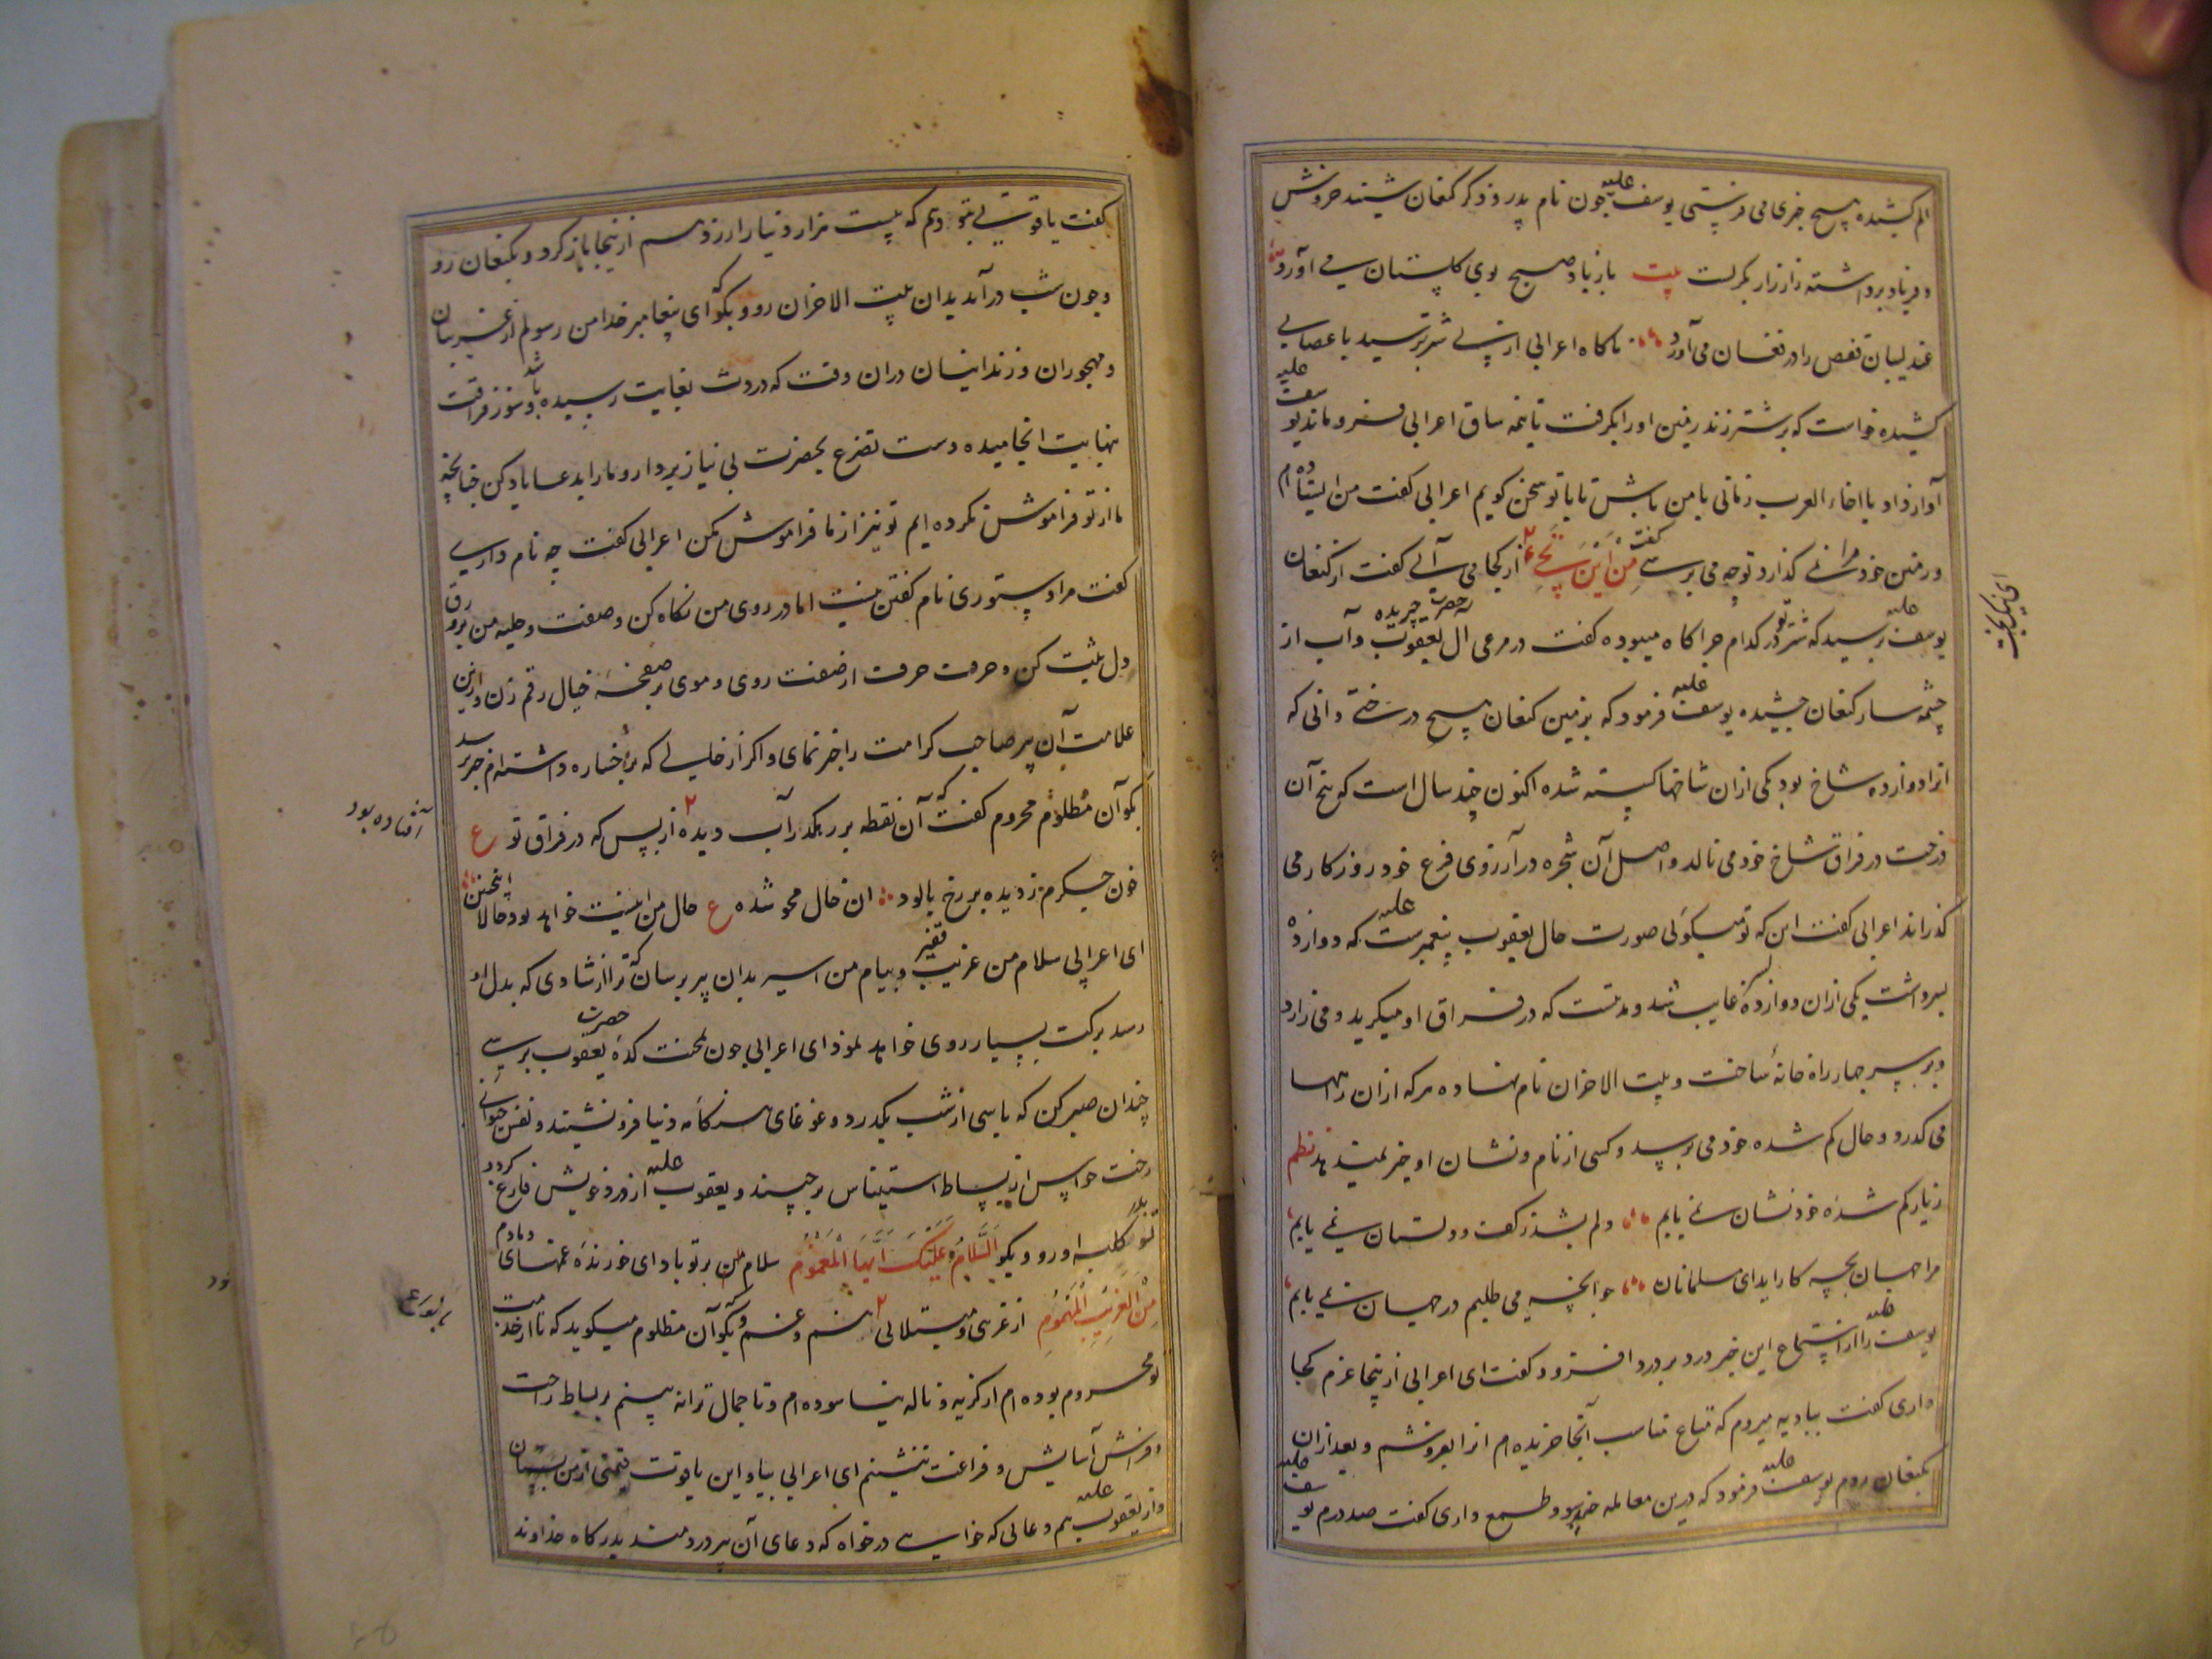 الم کشیده هیچ خبری می فرستی یوسف علیه چون نام پدر و ذکر کنعان شنید خروش
و فریاد برداشته زار زار بگریست بیت باز باد صبح بوی گلستان می آورد
عندلیبان قفص را در فغان می آورد ناکاه اعرابی از پی شتر برسید با عصایی
کشیده خواست که بر شتر زند زمین او را بگرفت تا نیمه ساق اعرابی فرو ماند یوسف علیه
آواز داد یا اخاء العرب زمانی با من باش تا با تو سخن کویم اعرابی کفت من ایستاده ام
و زمین خود مرا نمی کذارد تو چه می پرسی کفت مِن اَینَ از کجا می آئی کفت از کنعان
یوسف علیه پرسید که شتر تو در کدام چراکاه میبوده کفت در مرعی ال حضرت یعقوب چریده و آب از
چشمه سار کنعان چشیده یوسف علیه فرمود که بزمین کنعان هیچ درختی دانی که
انرا دوازده شاخ بود یکی ازان شاخها کسسته شده اکنون چند سال است که بیخ آن
درخت در فراق شاخ خود می نالد و اصل آن شجره در آرزوی فرع خود روزکار می
کذراند اعرابی کفت این که تو میکوئی صورت حال یعقوب پیغمبرست علیه که دوازده
پسر داشت یکی ازان دوازده غایب شد و مدتست که در فراق او میکرید و می زارد
و بر سر چهار راه خانه ساخت و بیت الاحزان نام نهاده هر که ازان راهها
می کذرد و حال کم شده خود می پرسد و کسی از نام و نشان او خبر نمیدهد نظم
زیار کم شده خود نشان نمی یابم دلم بشد ز کف و دلستان نمی یابم
مرا جهان بچه کار اید ای مسلمانان چو انچه می طلبم در جهان نمی یابم
یوسف علیه را از استماع این خبر درد بر درد افزود کفت ای اعرابی ازینجا عزم کجا
داری کفت ببادیه میروم که متاع مناسب آنجا خریده ام انرا بفروشم و بعد ازان
بکنعان روم یوسف علیه فرمود که درین معامله چند سود طمع داری کفت صد درم یوسف علیه
ای نیکبخت
کفت یاقوتی بتو دهم که بیست هزار دینار ارزد هم ازینجا باز کرد و بکنعان رو
و چون شب درآید بدان بیت الاحزان رو و بکو که ای پیغامبر خدا من رسولم از غریبان
و مهجوران و زندانیان دران وقت که دردت بغایت رسیده باشد و سوز فراقت
بنهایت انجامیده دست تضرع بحضرت بی نیاز بردار و ما را بدعا یاد کن چنانچه
ما از تو فراموش نکرده ایم تو نیز از ما فراموش مکن اعرابی کفت چه نام داری
کفت مرا دستوری نام کفتن نیست اما در روی من نکاه کن و صفت و حلیه من بر ورق
دل ثبت کن و حرف حرف از صفت روی و موی بر صفحۀ خیال رقم زن و ازین
علامت آن پیر صاحب کرامت را خبر نمای و اکر از خالی که بر رخساره داشته ام خبر پرسد
بکو آن مظلوم محروم کفت که آن نقطه بر رهکذر آب دیده از بس که در فراق تو ع
افتاده بود
خون جکرم ز دیده بر رخ پالود ان خال محو شده ع حال من اینست خواهد بود حالا اینچنین
ای اعرابی سلام من غریب فقیر و پیام من اسیر بدان پیر برسان که ترا از شادی که بدل او
رسد برکت بسیار روی خواهد نمود ای اعرابی چون بمحنت کدۀ حضرت یعقوب برسی
چندان صبر کن که پاسی از شب بکذرد و غوغای هنکامه دنیا فرو نشیند و نفس حیوانی
رخت حواس از بساط استیناس برچیند و یعقوب علیه از ورد خویش فارغ کردد
تو بدر کلبه او رو و بکو اَلسَّلامُ عَلَیْکَ اَیُّهَا الْمَغْمُوُم سلام من بر تو باد ای خورندۀ غمهای دمادم
مِنَ الْغَرِیبِ الْمَهْمُومِ از غریب و مبتلائی هم و غم و بکو که آن مظلوم میکوید که تا از خدمت
تو محروم بوده ام از کریه و ناله نیاسوده ام و تا جمال ترا نه بینم بر بساط راحت
و فراش آسایش و فراغت ننشینم ای اعرابی بیا و این یاقوت قیمتی از من بستان
و از یعقوب علیه هم دعائی که خواهی درخواه که دعای آن پیر دردمند بدرکاه خداوند